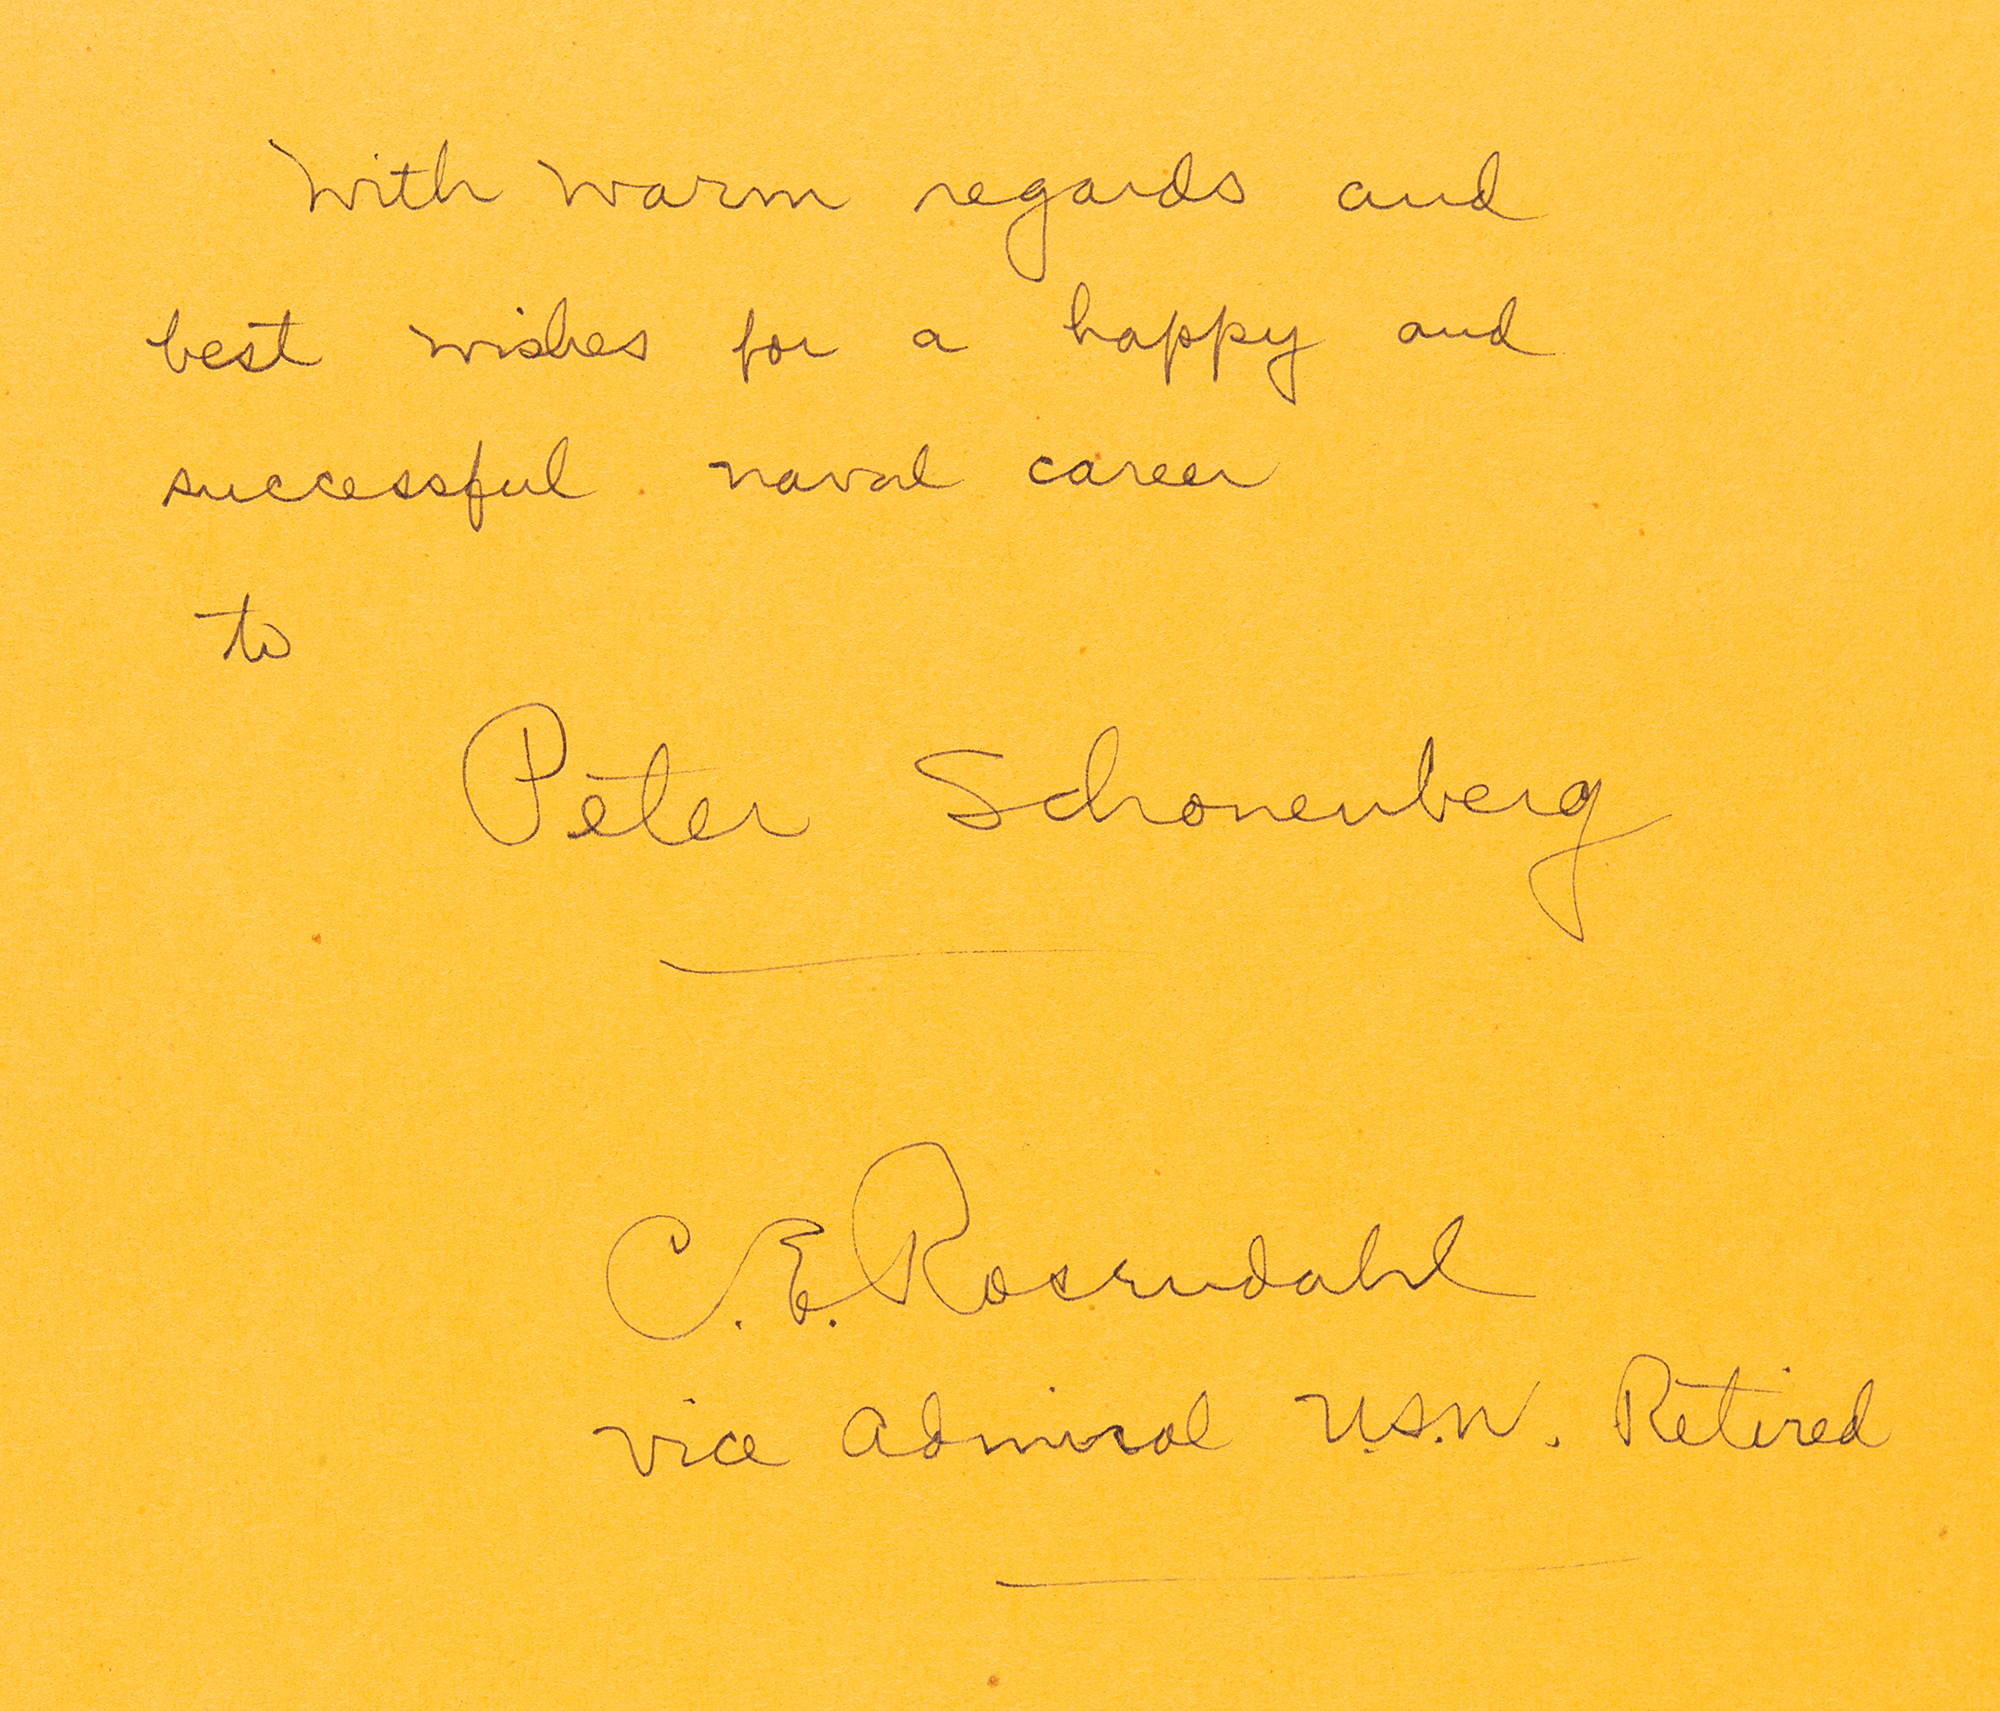 With warm regards and
best wishes for a happy and
successful naval career
to
Peter Schonenberg
C. E. Rosendahl
Vice Admiral U.S.N. Retired